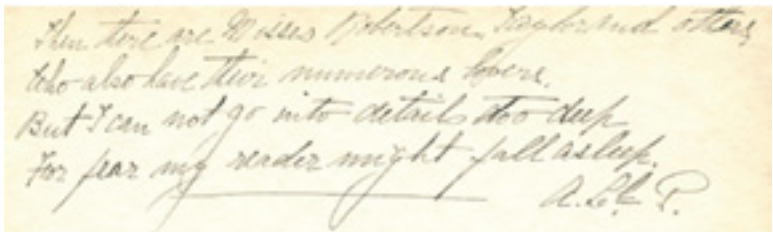 Then there are Misses Robertson, Taylor and others
Who also have their numerous lovers.
But I can not go into details too deep
For fear my reader might fall asleep.